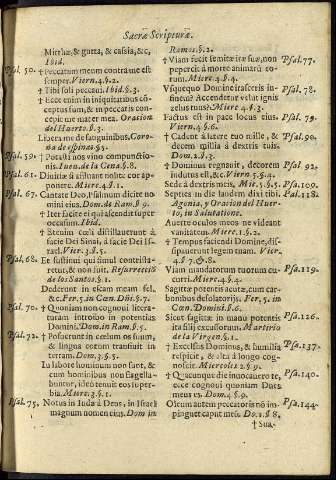 Sacræ Scripturæ.
Mirrhæ, & gutta, & cassia, &c,
Ibid.
Psal. 50. † Peccatum meum contra me est
semper. Viern.4.§.2.
† Tibi soli peccaui. Ibid.§.3.
† Ecce enim in iniquitatibus cō-
ceptus sum, & in peccatis con-
cepit me mater mea. Oracion
del Huerto.§.3.
Libera me de sanguinibus, Coro-
na de espinas.§.5.
Psal. 59. † Potasti nos vino compunctio-
nis. Iuen.de la Cena.§.8.
Psal. 61. Diuitiæ si affluant nolite cor ap-
ponere. Mierc.4.§.1.
Psal. 67. Cantate Deo, Psalmum dicite no
mini eius. Dom.de Ram.§.9.
† Iter facite ei qui ascendit super
occasum. Ibid.
† Etenim cœli distillauerunt à
facie Dei Sinai, à facie Dei Is-
rael. Vier.3.§.5.
Psal. 68. Et sustinui qui simul contrista-
retur, & non fuit. Resurrectiō
de los Santos.§.1.
Dederunt in escam meam fel,
&c. Fer.5.in Cœn. Dñi.§.7.
Psal. 70. † Quoniam non cognoui litera-
turam introibo in potentias
Domini. Dom.in Ram.§.5.
Psal. 72. † Posuerunt in cœlum os suum,
& lingua eorum transiuit in
terram. Dom.3.§.5.
In labore hominum non sunt, &
cum hominibus non flagella-
buntur, ideò tenuit eos super-
bia. Mierc.3.§.1.
Psal. 75. Notus in Iudæa Deus, in Israel
magnum nomen eius. Dom in
Ramos.§.2.
† Viam fecit semitæ iræ suæ, non Psal.77.
pepercit à morte animarū eo-
rum. Mierc.4.§.4.
Vsquequo Domine irasceris in- Psal. 78.
finem? Accendetur velut ignis
zelus tuus? Mierc.3.§.4.
Factus est in pace locus eius. Psal. 75.
Viern.4.§.6.
† Cadent à latere tuo mille, & Psal. 90.
decem millia à dextris tuis.
Dom.2.§.3.
† Dominus regnauit, decorem Psal. 92.
indutus est, &c. Vier.5.§.5.
Sede à dextris meis, Mi.1.§.5. Psal.109.
Septies in die laudem dixi tibi. Psal.118.
Agonia, y Oracion del Huer-
to, in Salutatione.
Auerte oculos meos ne videant
vanitatem. Mierc.1.§.2.
† Tempus faciendi Domine, dis-
sipauerunt legem tuam. Vier.
4.§.7.&8.
Viam mandatorum tuorum cu- Psa.119.
curri. Mierc.4.§.4.
Sagittæ potentis acutæ, cum car-
bonibus desolatorijs. Fer.5. in
Cœn. Domini.§.6.
Sicut sagittæ in manu potentis Psa.126.
ita filij excussorum. Martirio
de la Virgen.§.1.
† Excelsus Dominus, & humilia Psa.137.
respicit, & alta à longè cog-
noscit. Miercoles 2.§.9.
† Quacunque die inuocauero te, Psa.140.
ecce cognoui quoniam Deus
meus es. Dom.4.§.9.
Oleum autem peccatoris nō im- Psa.144.
pinguet caput meū. Do.1.§.8.
† Sua-